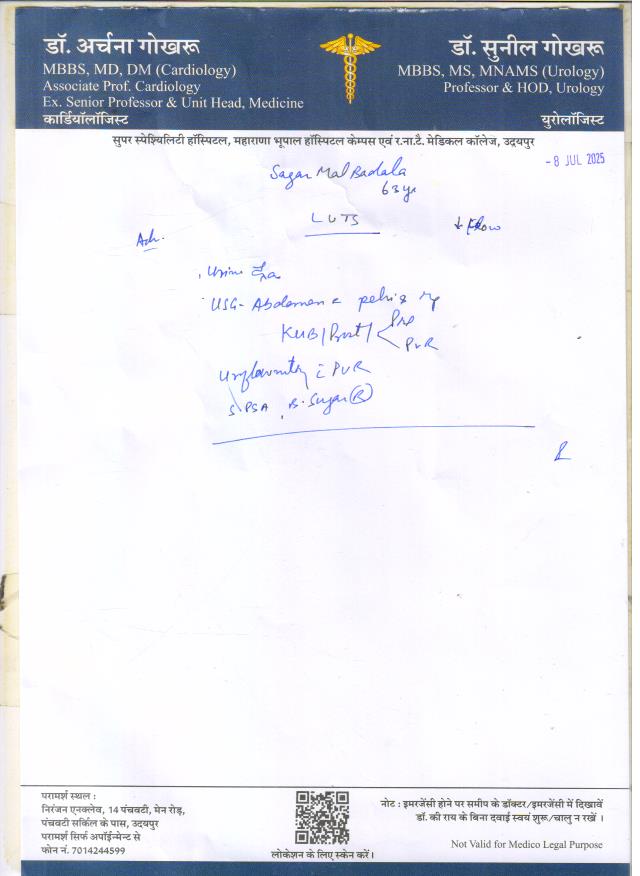 डॉ. अर्चना गोखरू
MBBS, MD, DM (Cardiology)
Associate Prof. Cardiology
Ex. Senior Professor & Unit Head, Medicine
कार्डियॉलॉजिस्ट
डॉ. सुनील गोखरू
MBBS, MS, MNAMS (Urology)
Professor & HOD, Urology
युरोलॉजिस्ट
सुपर स्पेश्यिलिटी हॉस्पिटल, महाराणा भूपाल हॉस्पिटल केम्पस एवं र.ना.टै. मेडिकल कॉलेज, उदयपुर
- 8 JUL 2025
Sagar Mal Badala
63 yr
LUTS
↓ Flow
Adv.
Urine
USG - Abdomen
KUB/Prost/ Pre
PVR
Uroflowmetry c̄ PVR
S.PSA, B. Sugar (R)
परामर्श स्थल :
निरंजन एनक्लेव, 14 पंचवटी, मेन रोड़,
पंचवटी सर्किल के पास, उदयपुर
परामर्श सिर्फ अपॉईन्मेन्ट से
फोन नं. 7014244599
लोकेशन के लिए स्केन करें।
नोट : इमरजेंसी होने पर समीप के डॉक्टर/इमरजेंसी में दिखावें
डॉ. की राय के बिना दवाई स्वयं शुरू/चालु न रखें ।
Not Valid for Medico Legal Purpose